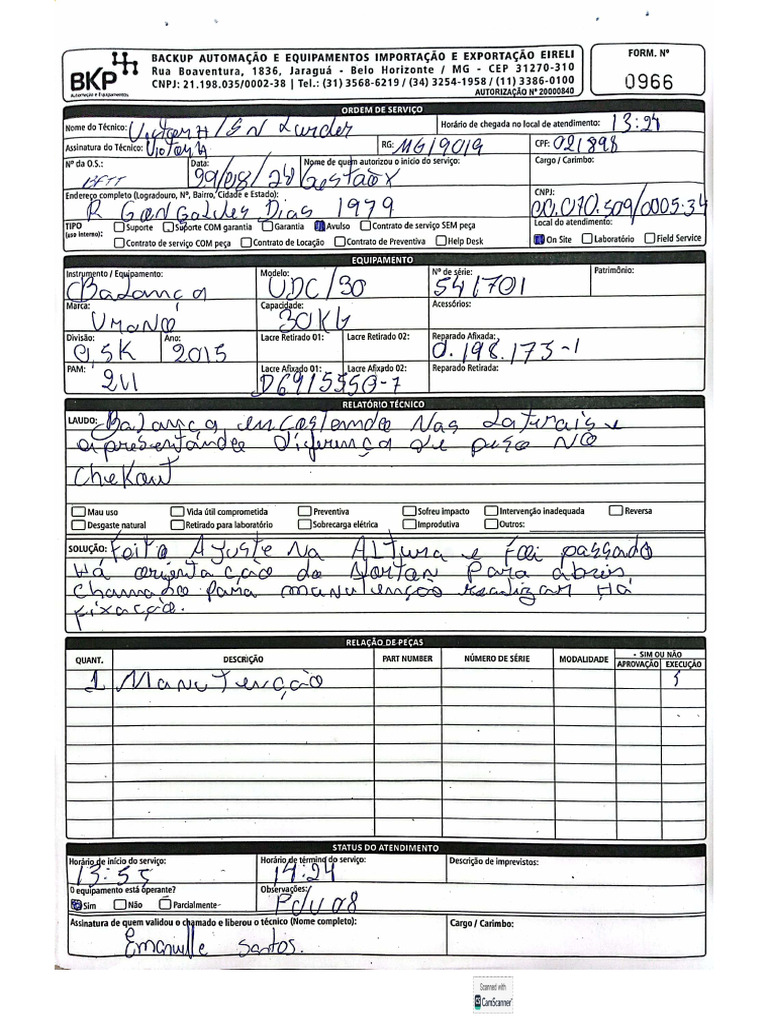 BKP
Automação e Equipamentos
BACKUP AUTOMAÇÃO E EQUIPAMENTOS IMPORTAÇÃO E EXPORTAÇÃO EIRELI
Rua Boaventura, 1836, Jaraguá - Belo Horizonte / MG - CEP 31270-310
CNPJ: 21.198.035/0002-38 | Tel.: (31) 3568-6219 / (34) 3254-1958 / (11) 3386-0100
AUTORIZAÇÃO Nº 20000840
FORM. Nº
0966
ORDEM DE SERVIÇO
Nome do Técnico: Victor H / SN
Horário de chegada no local de atendimento: 13:24
Assinatura do Técnico: Victor H
RG: MG19019
CPF: 021898
Nº da O.S.:
Data: 29/08/24
Nome de quem autorizou o início do serviço: GestãoX
Cargo / Carimbo:
Endereço completo (Logradouro, Nº, Bairro, Cidade e Estado):
R Gonçalves Dias 1979
CNPJ: 00.070.509/0005-34
TIPO (uso interno):
Suporte Suporte COM garantia Garantia Avulso Contrato de serviço SEM peça
Contrato de serviço COM peça Contrato de Locação Contrato de Preventiva Help Desk
Local do atendimento:
On Site Laboratório Field Service
EQUIPAMENTO
Instrumento / Equipamento: Balança
Modelo: UDC/30
Nº de série: 541701
Patrimônio:
Marca: Urano
Capacidade: 30KG
Acessórios:
Divisão:
Ano: 2015
Lacre Retirado 01:
Lacre Retirado 02:
Reparado Afixada: 0.198.173-1
PAM: 211
Lacre Afixado 01: Lacre Afixado 02:
D6915550-7
Reparado Retirada:
RELATÓRIO TÉCNICO
LAUDO: Balança encostando nas laturais e
apresentando diferença de peso no
Chekout
Mau uso Vida útil comprometida Preventiva Sofreu impacto Intervenção inadequada Reversa
Desgaste natural Retirado para laboratório Sobrecarga elétrica Improdutiva Outros:
SOLUÇÃO: Feito Ajuste na Altura e Foi passado
Há orientação do Norton Para abrir
chamado para manutenção realizar Há
fixação.
RELAÇÃO DE PEÇAS
QUANT. DESCRIÇÃO PART NUMBER NÚMERO DE SÉRIE MODALIDADE SIM OU NÃO
APROVAÇÃO EXECUÇÃO
1 Manutenção S
STATUS DO ATENDIMENTO
Horário de início do serviço: 13:55
Horário de término do serviço: 14:24
Descrição de imprevistos:
O equipamento está operante?
Sim Não Parcialmente
Observações: Pdv 08
Assinatura de quem validou o chamado e liberou o técnico (Nome completo):
Emanuelle Santos.
Cargo / Carimbo:
Scanned with
CS CamScanner